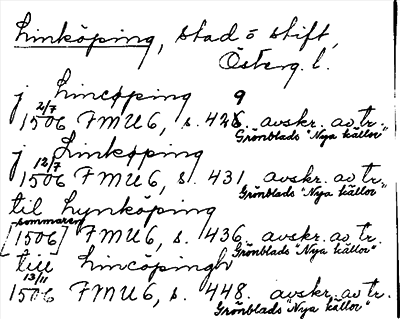 Linköping, stad o stift,
Österg. l.
j Lincöping
2/7
1506 FMU 6, s. 429. avskr. av tr.
Grönblads "Nya källor"
j Linköping
12/7
1506 FMU 6, s. 431 avskr. av tr.
Grönblads "Nya källor"
til Lynköping
sommaren
[1506] FMU 6, s. 436 avskr. av tr.
Grönblads "Nya källor"
till Lincöpingh
13/11
1506 FMU 6, s. 448. avskr. av tr.
Grönblads "Nya källor"